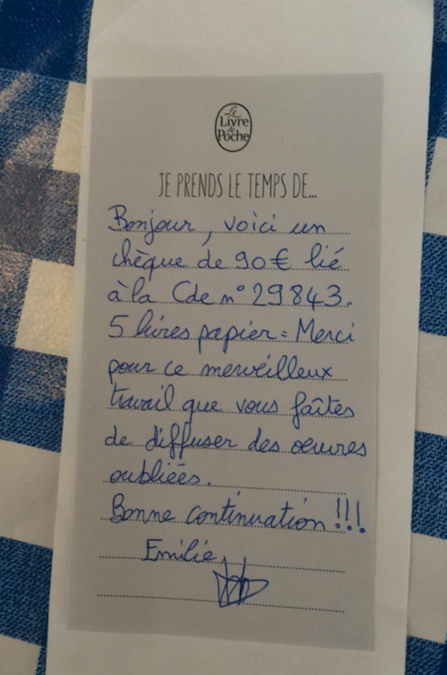 Le
Livre
de
Poche
JE PRENDS LE TEMPS DE...
Bonjour, voici un
chèque de 90€ lié
à la Cde n° 29843.
5 livres papier = Merci
pour ce merveilleux
travail que vous faîtes
de diffuser des oeuvres
oubliées.
Bonne continuation !!!
Emilie